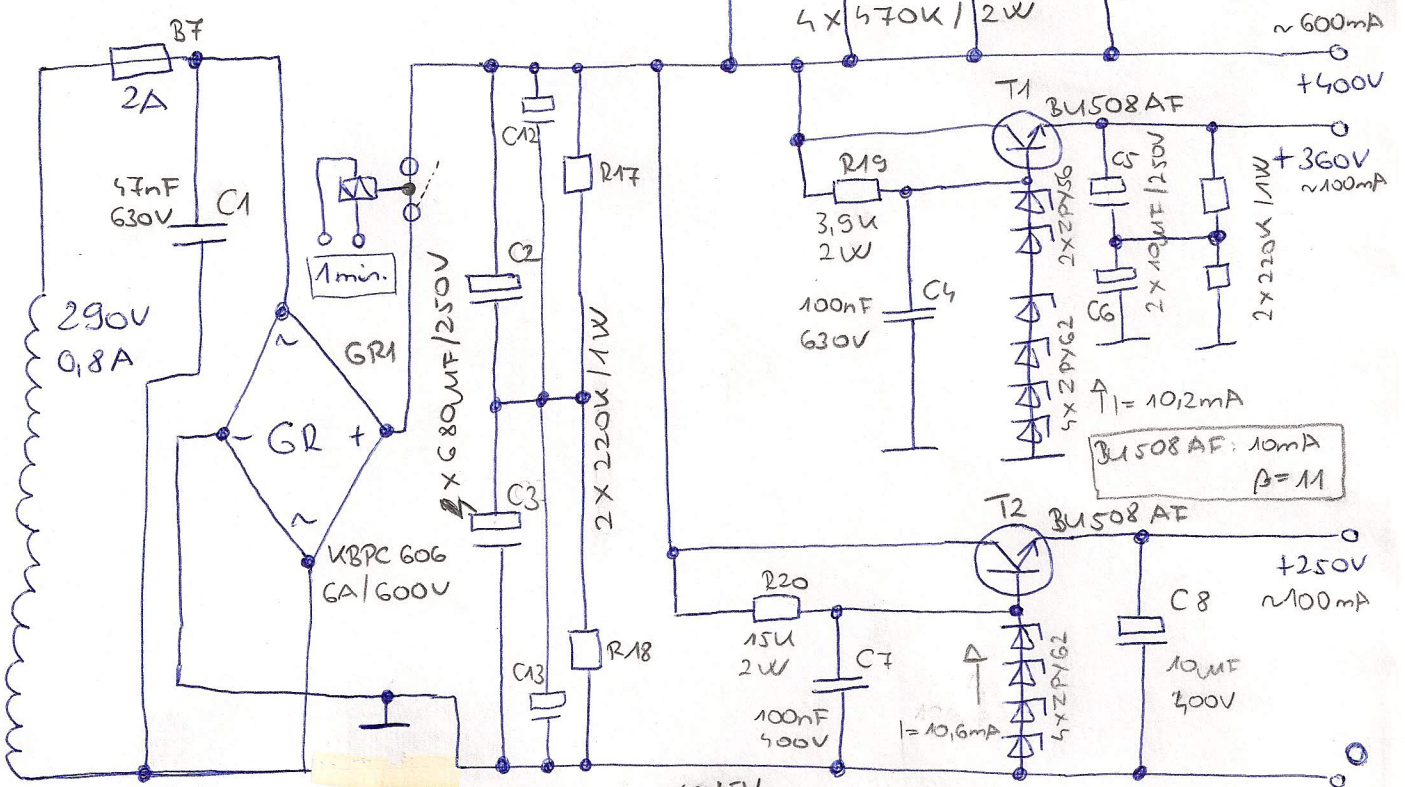 B7
2A
47nF
630V
C1
290V
0,8A
1min.
~
GR1
- GR +
~
KBPC 606
6A/600V
2 x 680µF/250V
C2
C3
C12
C13
R17
R18
2 x 220K/1W
4 x 470K/2W
~600mA
+400V
T1
BU508AF
+360V
~100mA
R19
3,9K
2W
C4
100nF
630V
2xZPY56
4xZPY62
C5
C6
2 x 10µF/250V
2 x 220K/1W
I=10,2mA
BU508AF: 10mA
β=11
T2
BU508AF
+250V
~100mA
R20
15K
2W
C7
100nF
400V
I=10,6mA
4xZPY62
C8
10µF
400V